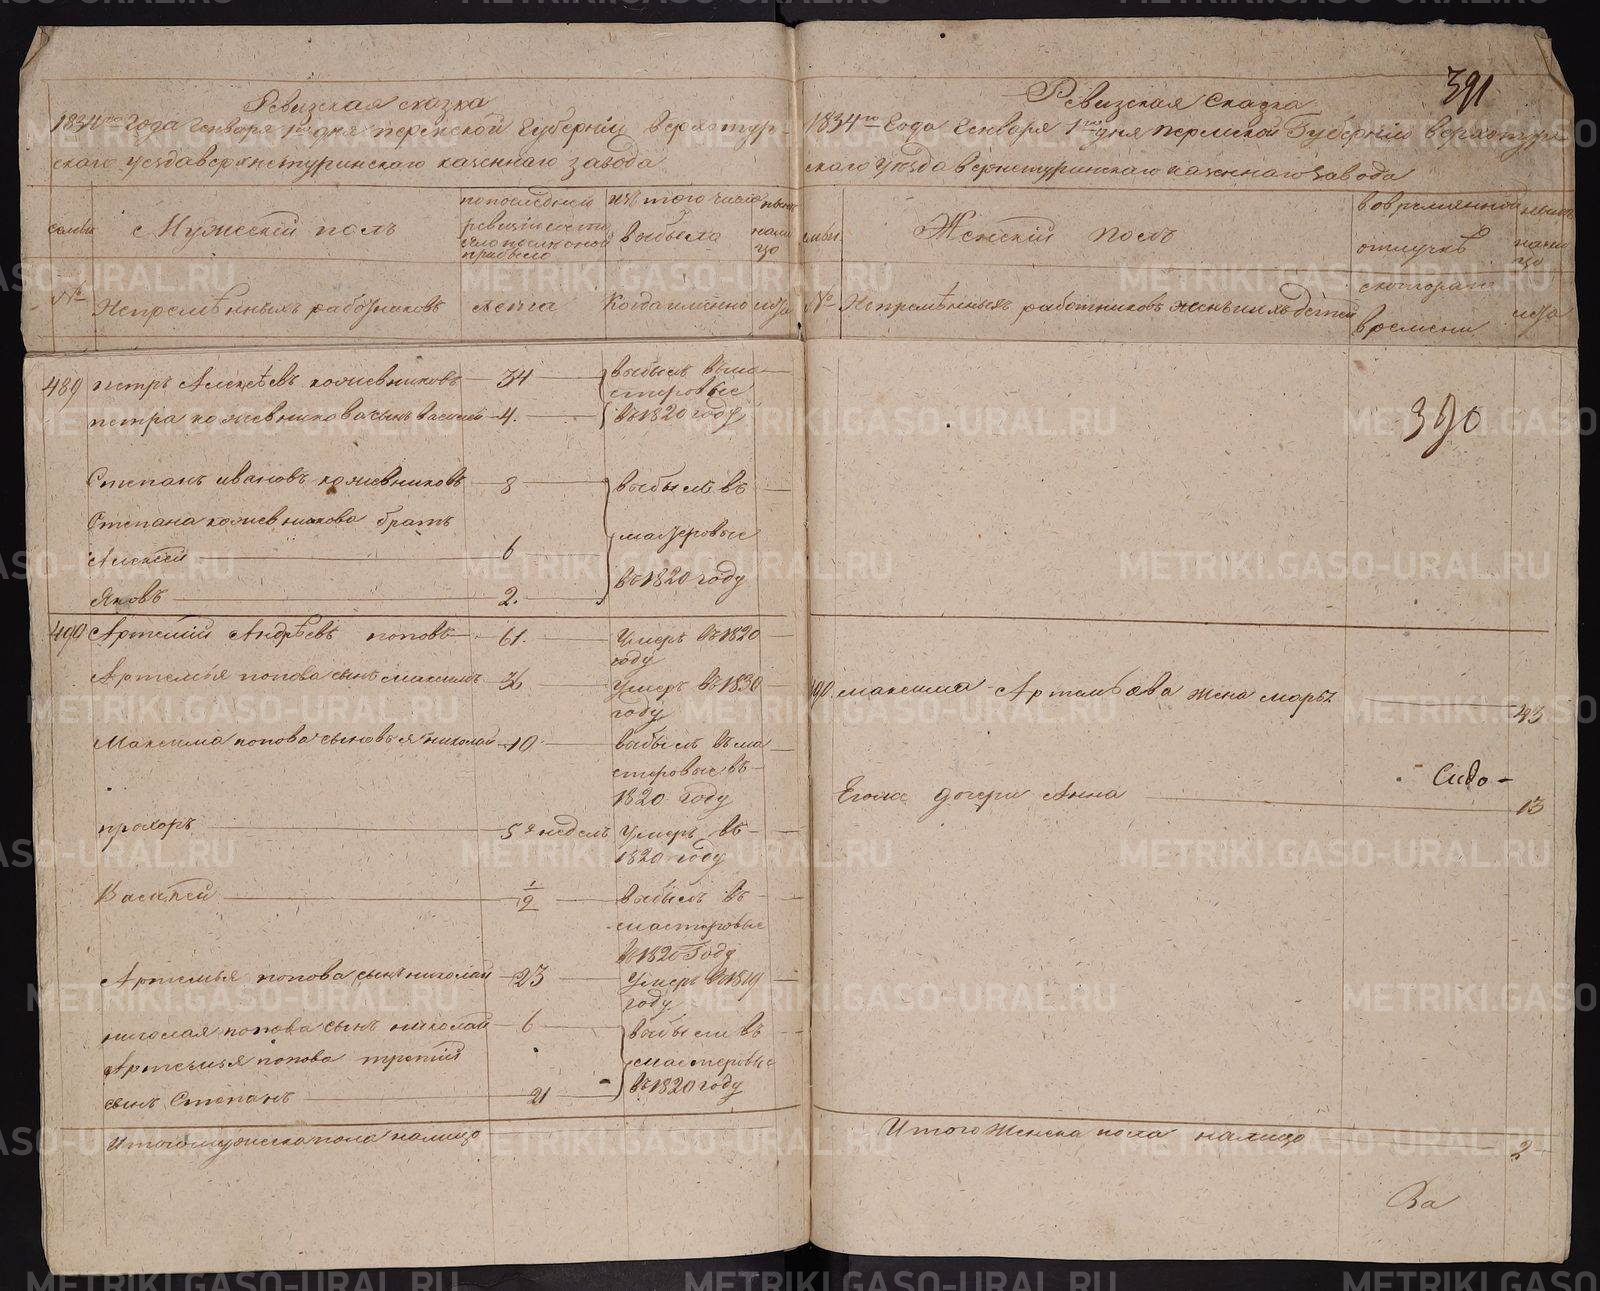 Ревизская сказка
1834го Года Генваря 1го дня пермской Губернии верхотур-
скаго уезда верхнетуринскаго казеннаго завода
семьи
Мужеский полъ
по последней
ревизии состо
яло и после оной
прибыло
изъ того числа
выбыло
ныне
нали
цо
№
Непременныхъ работниковъ
лета
Когда имянно
лета
489 петръ Алексѣевъ кожевниковъ 34 выбылъ въ ма-
стеровые
петра кожевникова сынъ василей 4. въ 1820 году
Степанъ ивановъ кожевниковъ 8 выбылъ въ
Степана кожевникова братъ мастеровые
Алексей 6
Яковъ 2. въ 1820 году
490 Артемий Андрѣевъ поповъ 61. Умеръ въ 1820
году
Артемья попова сынъ максимъ 36 Умеръ въ 1830
году
Максима попова сыновья николай 10 выбылъ въ ма
стеровые въ
1820 году
прохоръ 5ть недель Умеръ въ
1820 году
Василей 1/2 выбылъ въ
мастеровые
въ 1820 Году
Артемья попова сынъ николай 23 Умеръ въ 1819
году
николая попова сынъ николай 6 выбыли въ
Артемья попова третий мастеровые
сынъ Степанъ 21 въ 1820 году
Итого мужеска пола налицо
391
Ревизская Сказка
1834го Года Генваря 1го дня пермской Губернии верхотур
скаго уезда верхнетуринскаго казеннаго завода
семьи
Женский полъ
во временной
отлучкѣ
ныне
нали
цо
№
Непремѣнныхъ работниковъ жены и ихъ дѣтей
с котораго
времени
лета
390
490 максима Артемьева жена марья 43
Сидо-
Егоже дочери Анна 13
Итого Женска пола налицо 2
За
METRIKI.GASO-URAL.RU